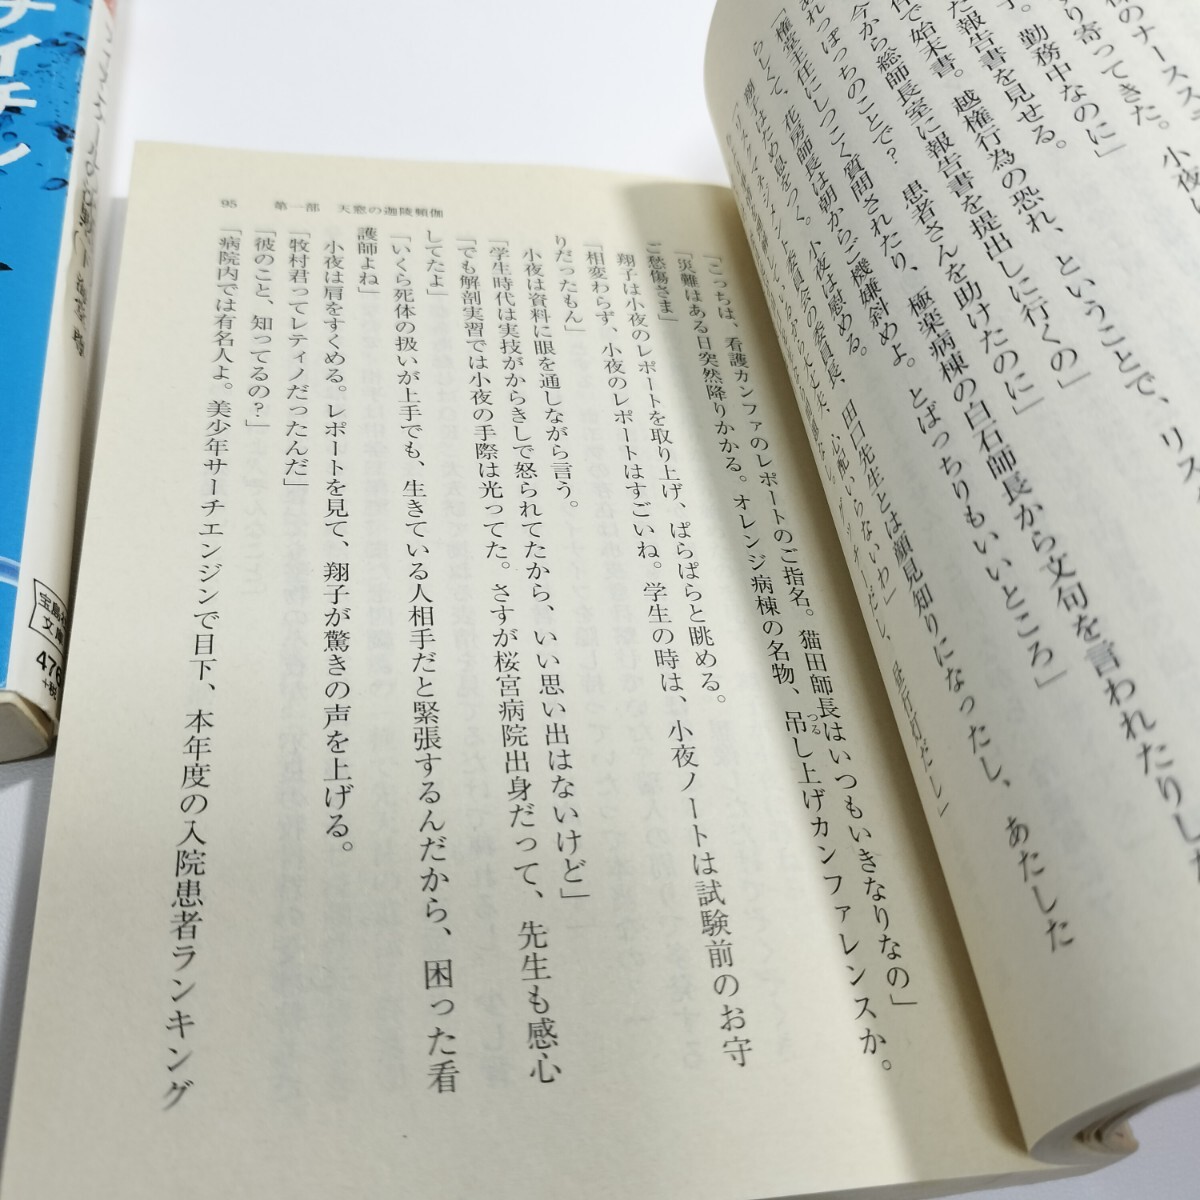 様のナースス
り寄ってきた。小夜
。勤務中なのに」
た報告書を見せる。
件で始末書。越権行為の恐れ、ということで、リス
今から総師長室に報告書を提出しに行くの」
れっぽっちのことで？　患者さんを助けたのに」
「権堂主任にしつこく質問されたり、極楽病棟の白石師長から文句を言われたりした
らしくて、花房師長は朝からご機嫌斜めよ。とばっちりもいいところ」
翔子はため息をつく。小夜は慰める。
「リスクマネジメント委員会の委員長、田口先生とは顔見知りになったし、あたした
大丈夫、心配いらないわ」
昼行灯だし」
「こっちは、看護カンファのレポートのご指名。猫田師長はいつもいきなりなの」
「災難はある日突然降りかかる。オレンジ病棟の名物、吊し上げカンファレンスか。
つる
ご愁傷さま」
翔子は小夜のレポートを取り上げ、ぱらぱらと眺める。
「相変わらず、小夜のレポートはすごいね。学生の時は、小夜ノートは試験前のお守
りだったもん」
小夜は資料に眼を通しながら言う。
「学生時代は実技がからきしで怒られてたから、いい思い出はないけど」
「でも解剖実習では小夜の手際は光ってた。さすが桜宮病院出身だって、先生も感心
してたよ」
「いくら死体の扱いが上手でも、生きている人相手だと緊張するんだから、困った看
護師よね」
小夜は肩をすくめる。レポートを見て、翔子が驚きの声を上げる。
「牧村君ってレティノだったんだ」
「彼のこと、知ってるの？」
「病院内では有名人よ。美少年サーチエンジンで目下、本年度の入院患者ランキング
95　第一部　天窓の迦陵頻伽
ナイチン
宝島
文庫
476
+税